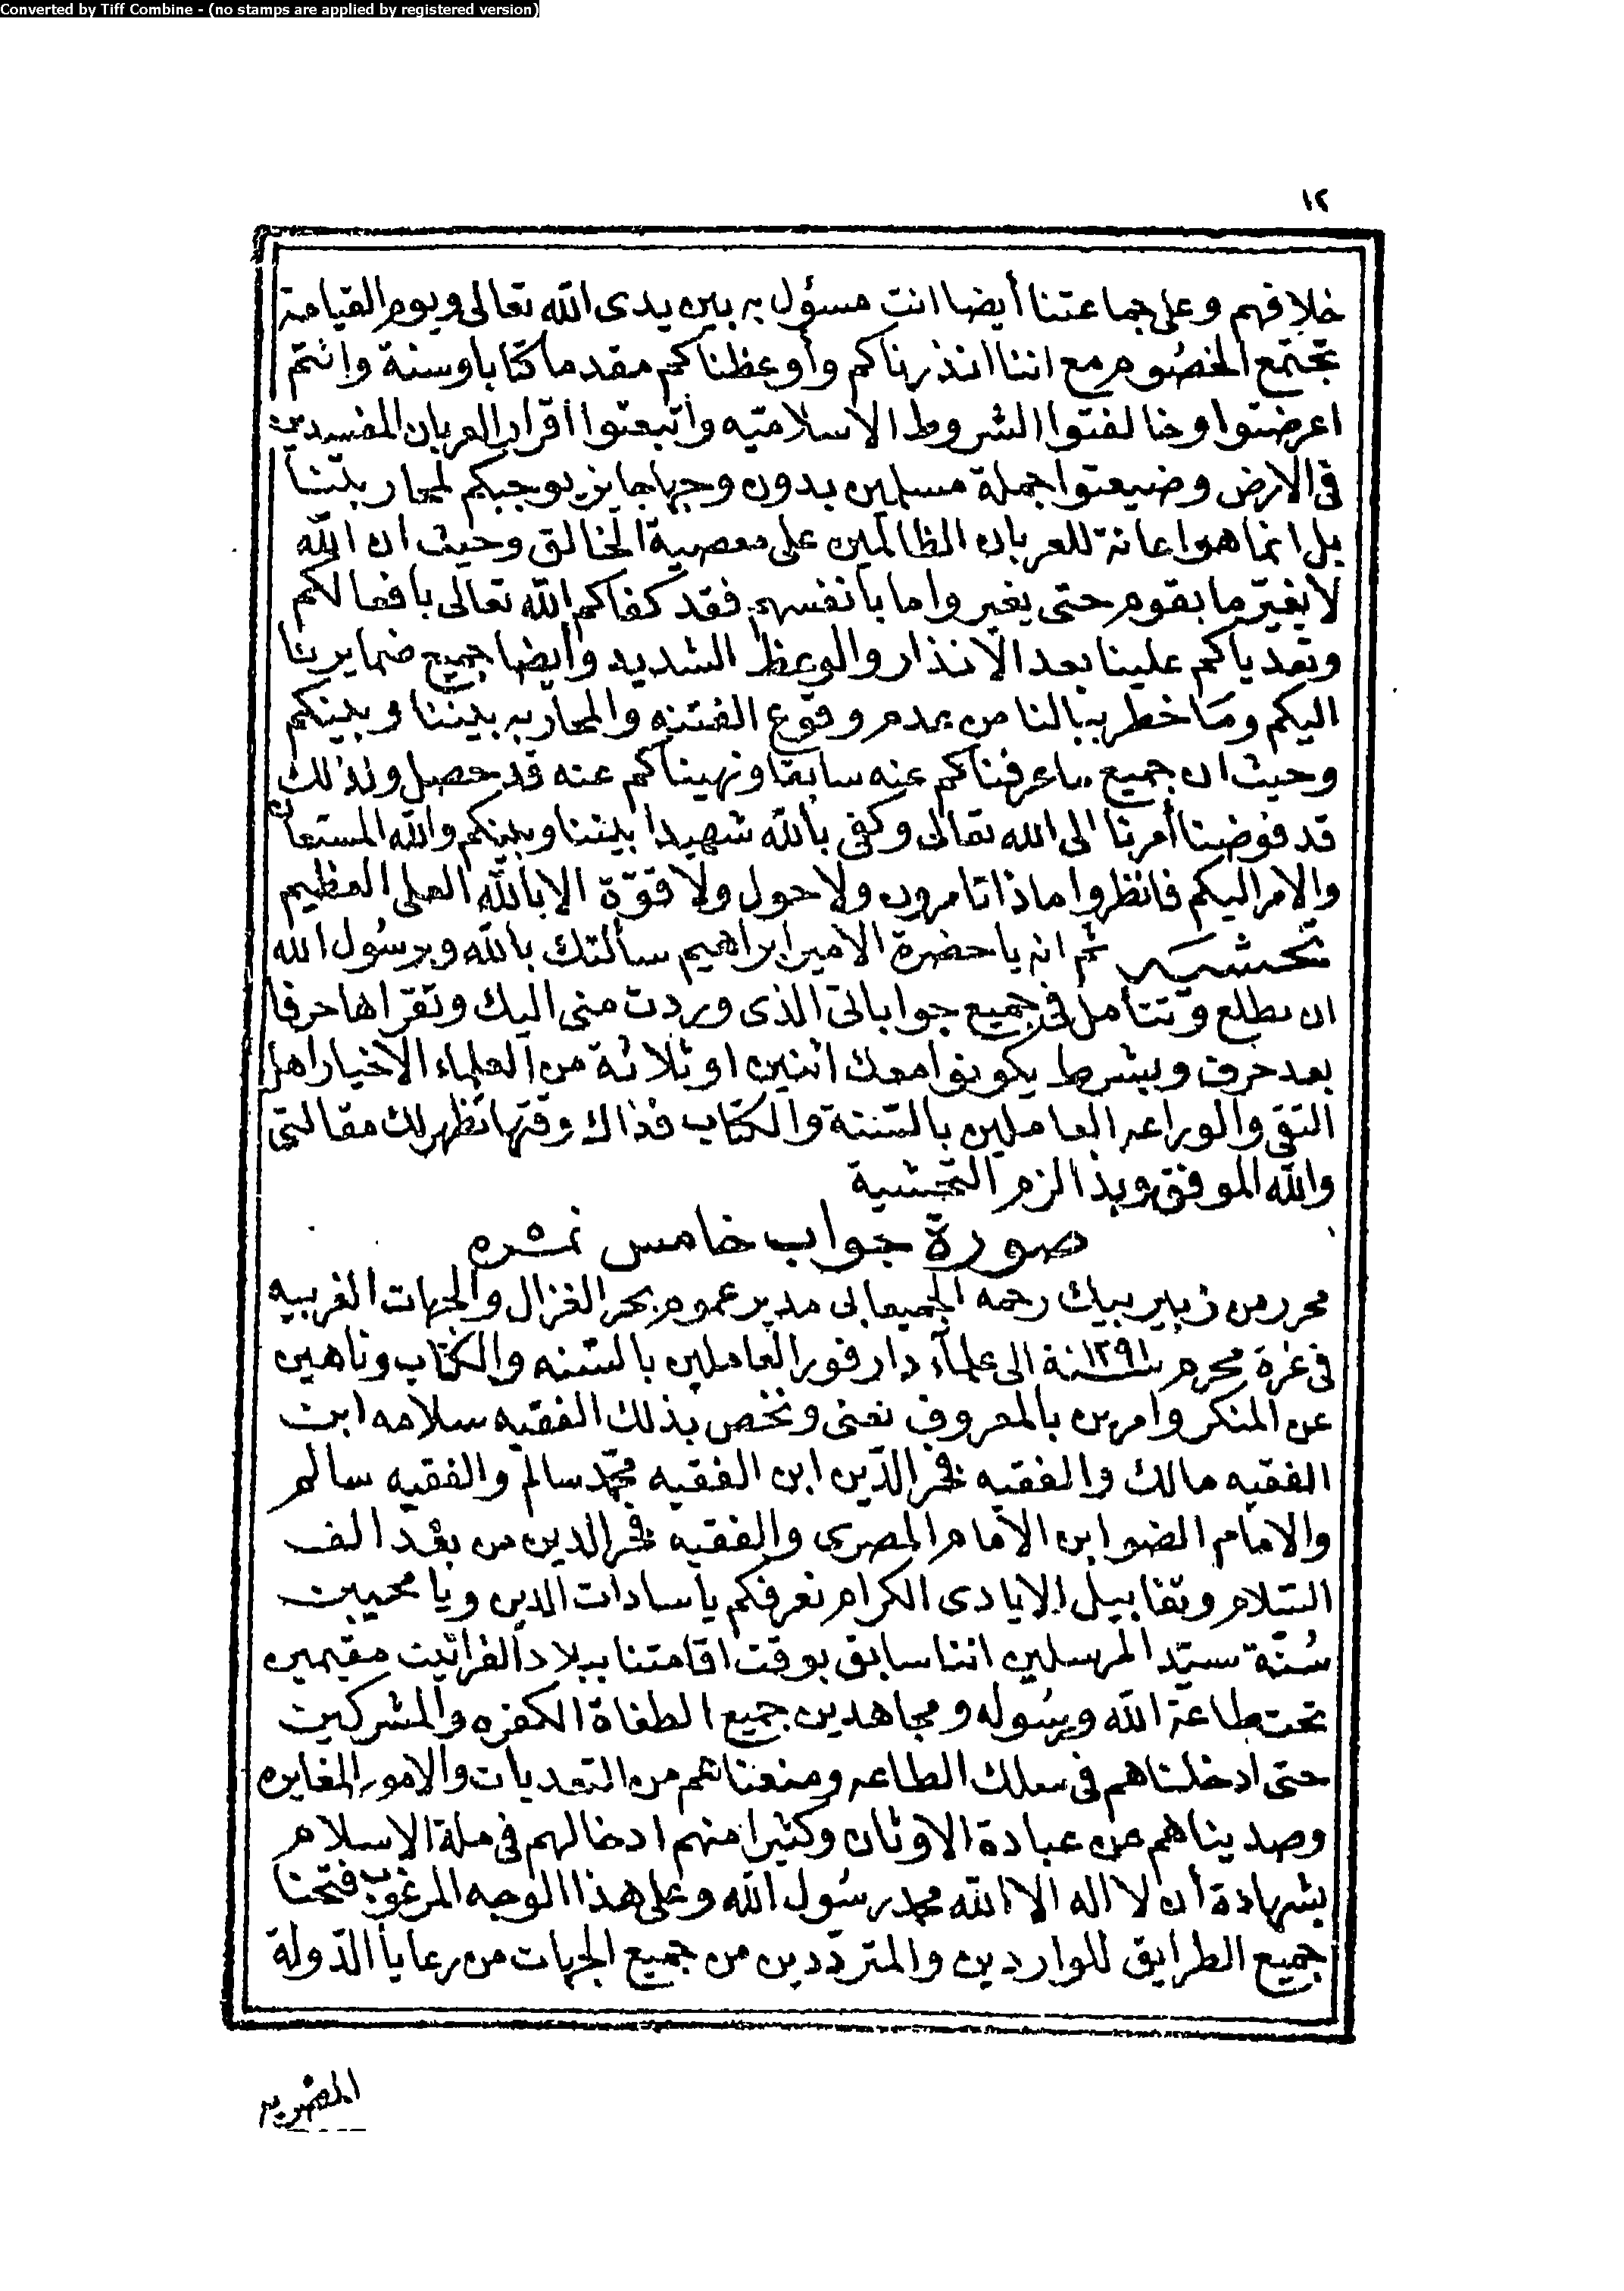 Converted by Tiff Combine - (no stamps are applied by registered version)
١٢
خلافهم وعلى جماعتنا أيضا انت مسؤل به بين يدى الله تعالى ويوم القيامة
تجتمع الخصُوم مع اننا انذرناكم وأوعظناكم مقدما كتابا وسنة وانتم
اعرضتوا وخالفتوا الشروط الاسلاميّه واتبعتوا اقرار العربان المفسدين
فى الارض وضيعتوا جملة مسلمين بدون وجها جايز يوجبكم لمحاربتنا
بل انما هو اعانة للعربان الظالمين على معصية الخالق وحيث ان الله
لا يغيّر ما بقوم حتى يغيروا ما بأنفسهم فقد كفاكم الله تعالى بافعالكم
وتعدياكم علينا بعد الانذار والوعظ الشديد وأيضا جميع ضمايرنا
اليكم وما خطر ببالنا من عدم وقوع الفتنه والمحاربه بيننا وبينكم
وحيث ان جميع ما عرفناكم عنه سابقا ونهيناكم عنه قد حصل ولذلك
قد فوضنا أمرنا الى الله تعالى وكفى بالله شهيدا بيننا وبينكم والله المستعان
والامر اليكم فانظروا ماذا تامرون ولا حول ولا قوّة الا بالله العلى العظيم
تحشيه ثم انه يا حضرة الامير ابراهيم سألتك بالله وبرسُول الله
ان تطلع وتتأمل فى جميع جواباتى الذى وردت منى اليك وتقراها حرفا
بعد حرف وبشرط يكونوا معك اثنين او ثلاثة من العلماء الاخيار اهل
التقى والوراعه العاملين بالسّنة والكتاب فذاك وقتها تظهر لك مقالتى
والله الموفق وبذا لزم التحشية
صورة جواب خامس نمره ٥
محرر من زبير بيك رحمه الجميعابى مدير عموم بحر الغزال والجهات الغربيه
فى غرة محرم سنة ١٢٩١ الى علمآء دارفور العاملين بالسّنه والكتاب وناهين
عن المنكر وامرين بالمعروف نعنى ونخص بذلك الفقيه سلامه ابن
الفقيه مالك والفقيه فخر الدّين ابن الفقيه محمّد سالم والفقيه سالم
والامام الضو ابن الامام المصرى والفقيه فخر الدين من بعد الف
السّلام وتقابيل الايادى الكرام نعرفكم يا سادات الدين ويا محيين
سُنّة سيّد المرسلين اننا سابق بوقت اقامتنا ببلاد الفراتيت مقيمين
تحت طاعة الله ورسُوله ومجاهدين جميع الطغاة الكفره والمشركين
حتى ادخلناهم فى سلك الطاعه ومنعناهم من التعديات والامور المغايره
وصديناهم عن عبادة الاوثان وكثيرا منهم ادخالهم فى ملة الاسلام
بشهادة أن لا اله الا الله محمد رسُول الله وعلى هذا الوجه المرغوب فتحنا
جميع الطرايق للواردين والمتردّدين من جميع الجهات من رعايا الدّولة
المصريه